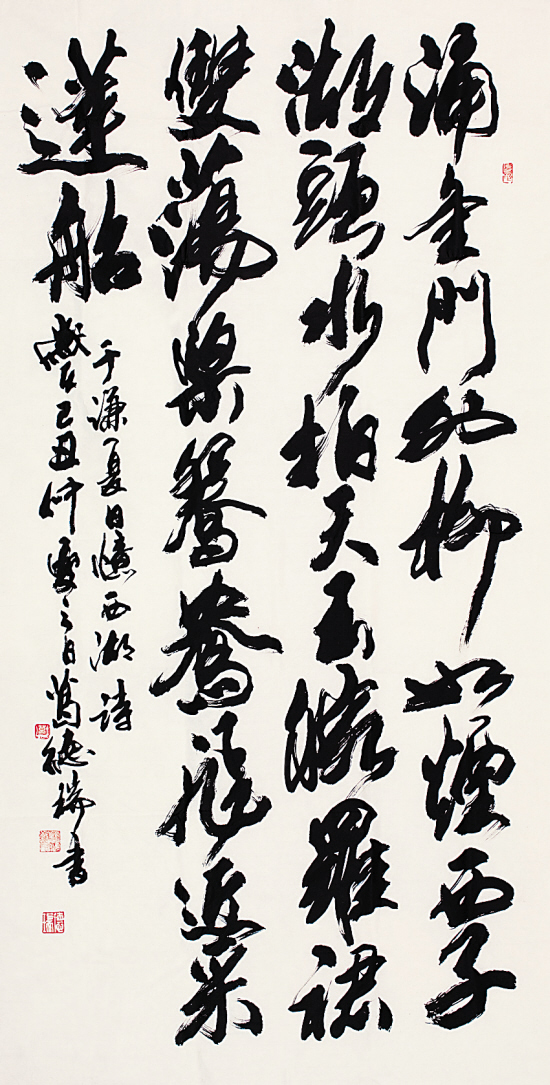 涌金門外柳如煙西子
湖頭水拍天玉腕羅裙
雙蕩槳鴛鴦飛近采
蓮船
于謙夏日憶西湖詩
己丑仲夏之日葛德瑞書